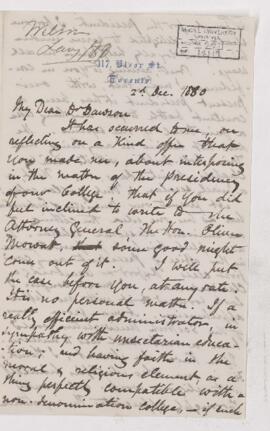 117, Bloor St.
Toronto
2d Dec. 1880
My Dear Dr Dawson
It has occurred to me, on
reflecting on a kind offer that
you made me, about interposing
in the matter of the Presidency
of our College that if you did
feel inclined to write to the
Attorney General, The Hon. Oliver
Mowat, some good might
come out of it. I will put
the case before you, at any rate.
It is no personal matter. If a
really efficient administrator, in
sympathy with unsectarian educa-
tion, and having faith in the
moral & religious element as a
thing perfectly compatible with a
non-denomination college, – if such